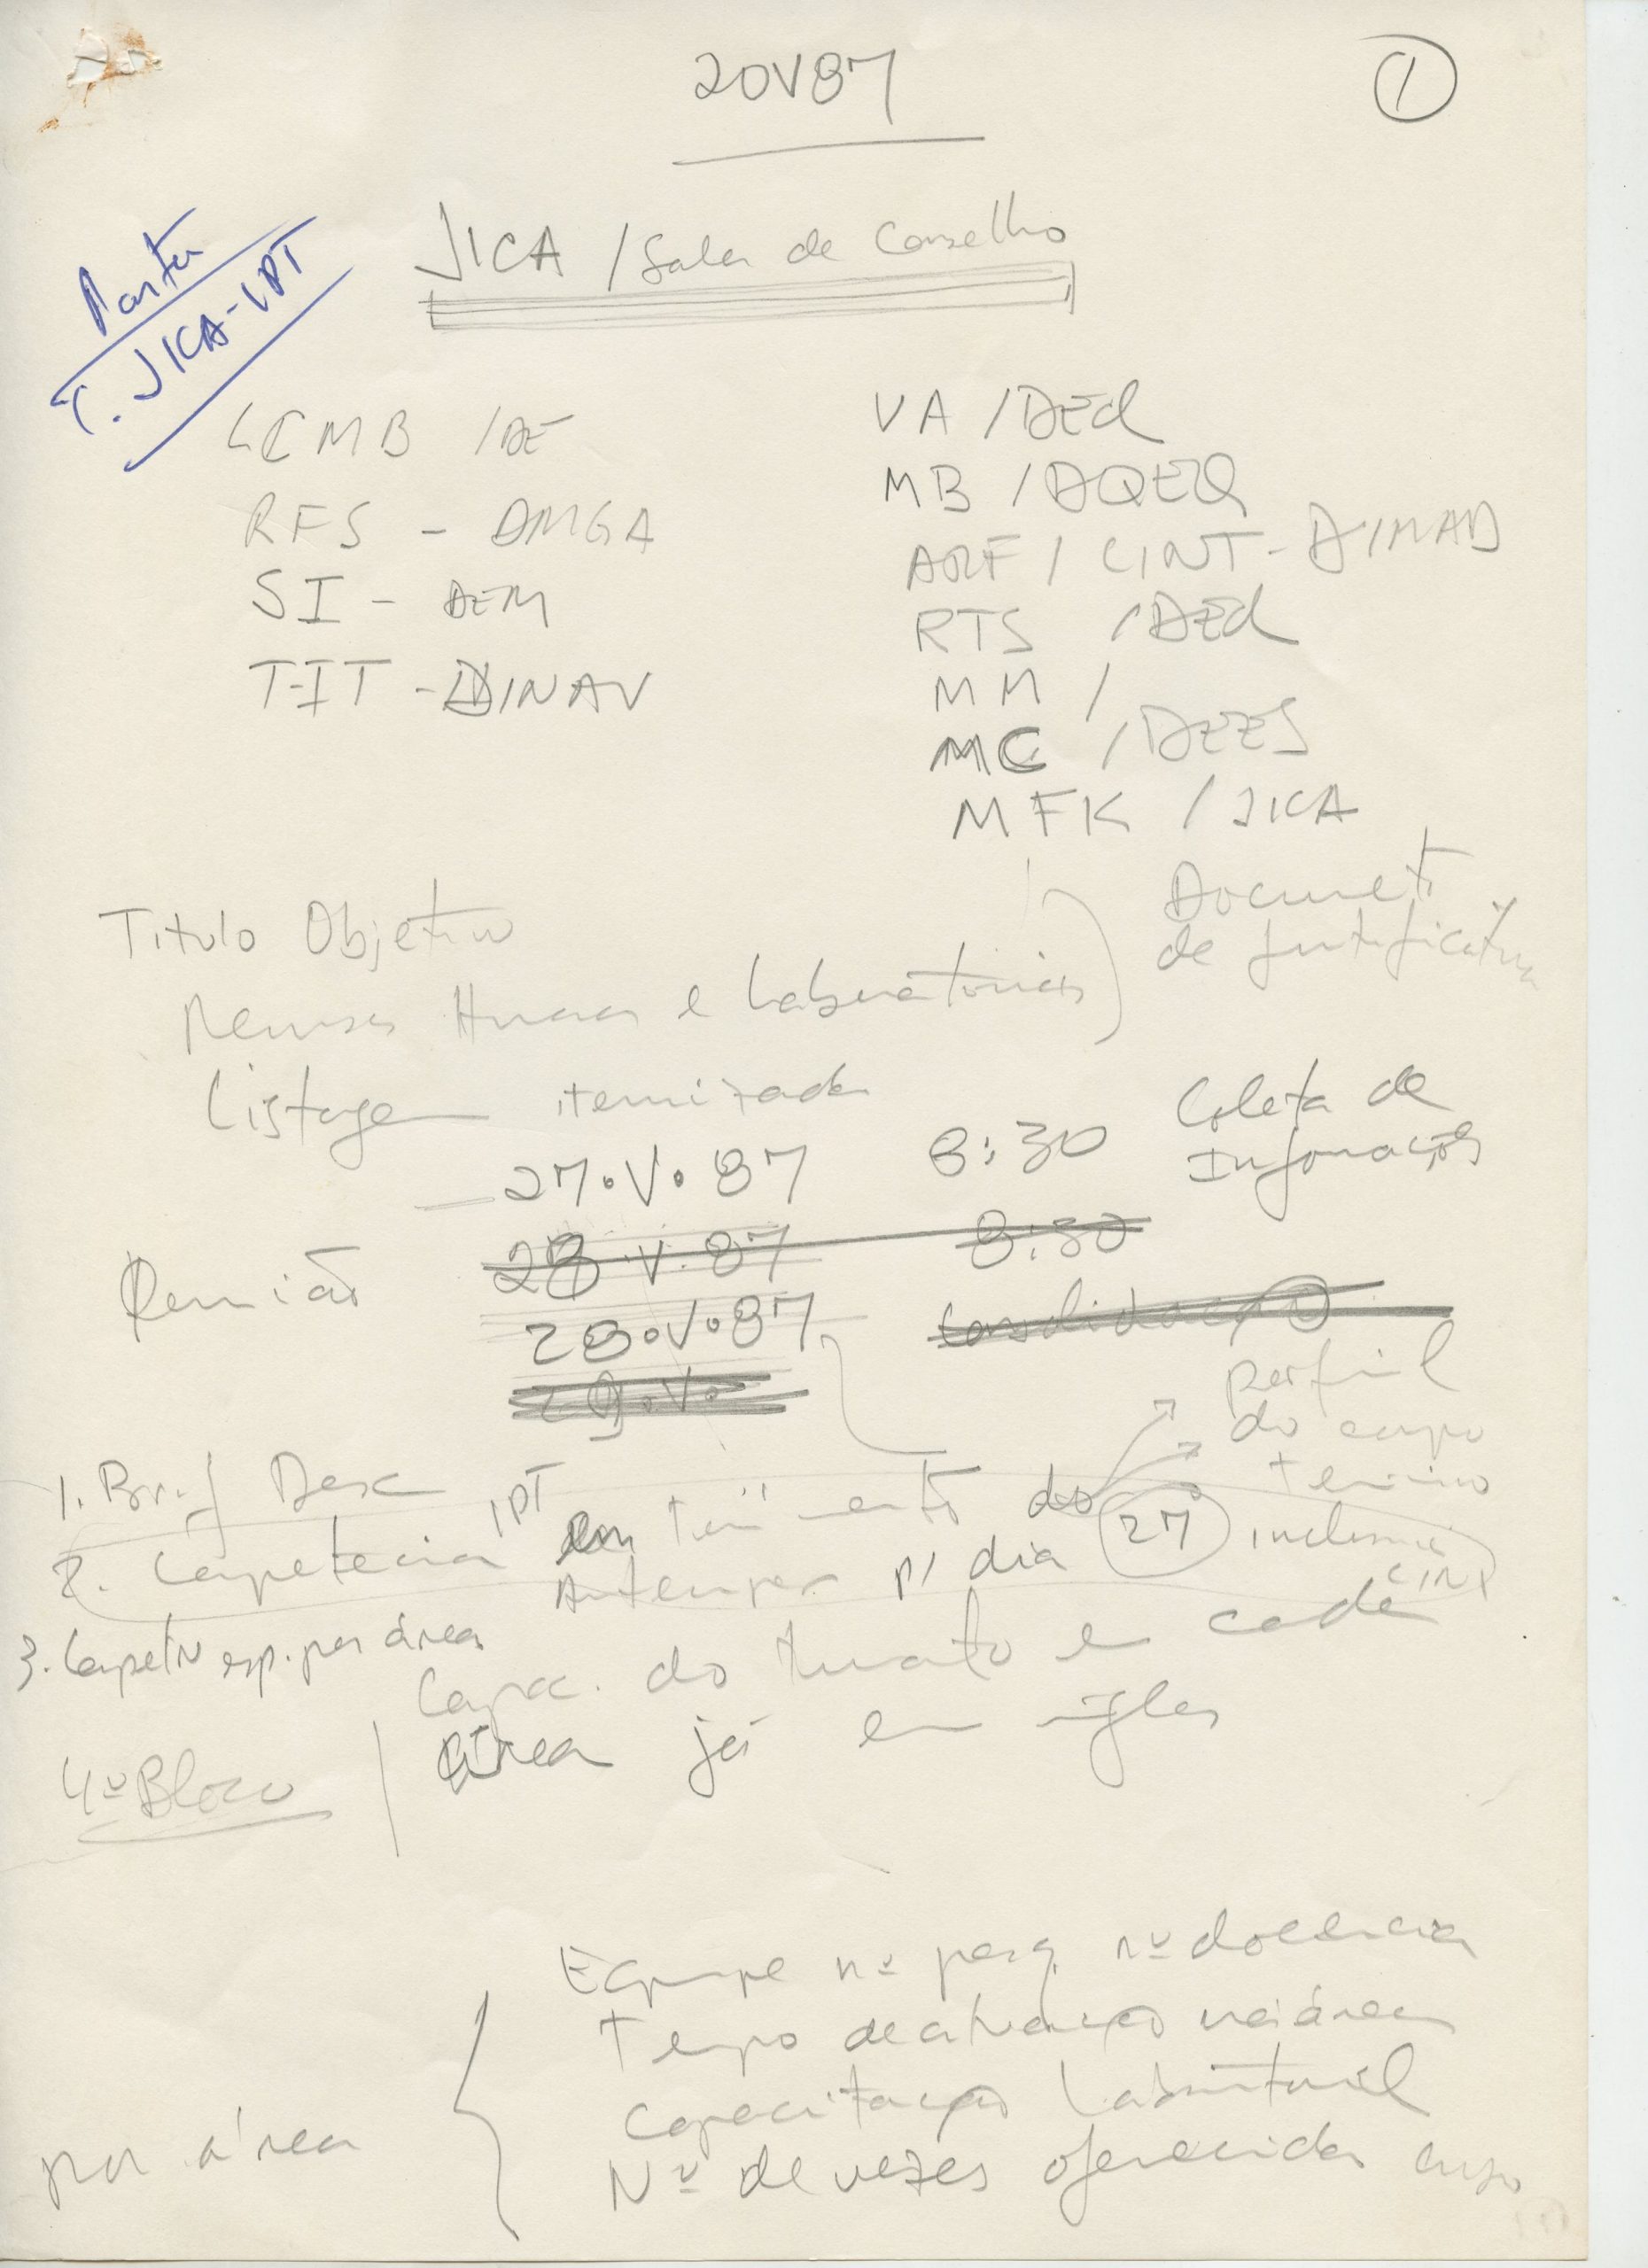 20V87
1
JICA / Sala de Conselho
Pasta
T. JICA-IPT
LCMB / DE
RFS - DMGA
SI - DEM
TIT - DINAV
VA / DEd
MB / DQEQ
ARF / CINT - DIMAD
RTS / DEd
MM /
MC / DEES
MFK / JICA
Titulo Objetivo
Humanos e Laboratoriais
Document
de justificativa
Listagem itemizada
27.V.87 8:30 Coleta de
Informações
28.V.87 8:30
Reunião
28.V.87
Consolidação
29.V.
perfil
do corpo
1. Brief Desc
2. Competencia IPT
p/ dia 27 inclusive
CINT
3. por área
do e cada
área já em ingles
4º Bloco
por área
Equipe nº pesq. nº docencia
Tempo de atuação na área
Capacitação Laboratorial
Nº de vezes oferecido curso